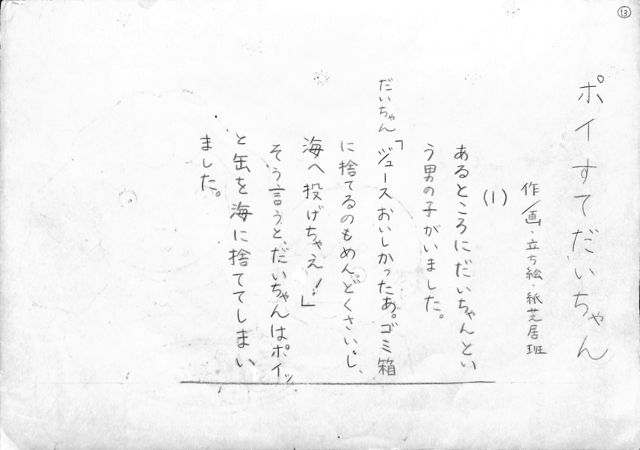 ⑬
ポイすてだいちゃん
作/画・立ち絵・紙芝居班
(1)
あるところにだいちゃんとい
う男の子がいました。
だいちゃん「ジュースおいしかったあ。ゴミ箱
に捨てるのもめんどくさいし、
海へ投げちゃえ!」
そう言うと、だいちゃんはポイッ
と缶を海に捨ててしまい
ました。